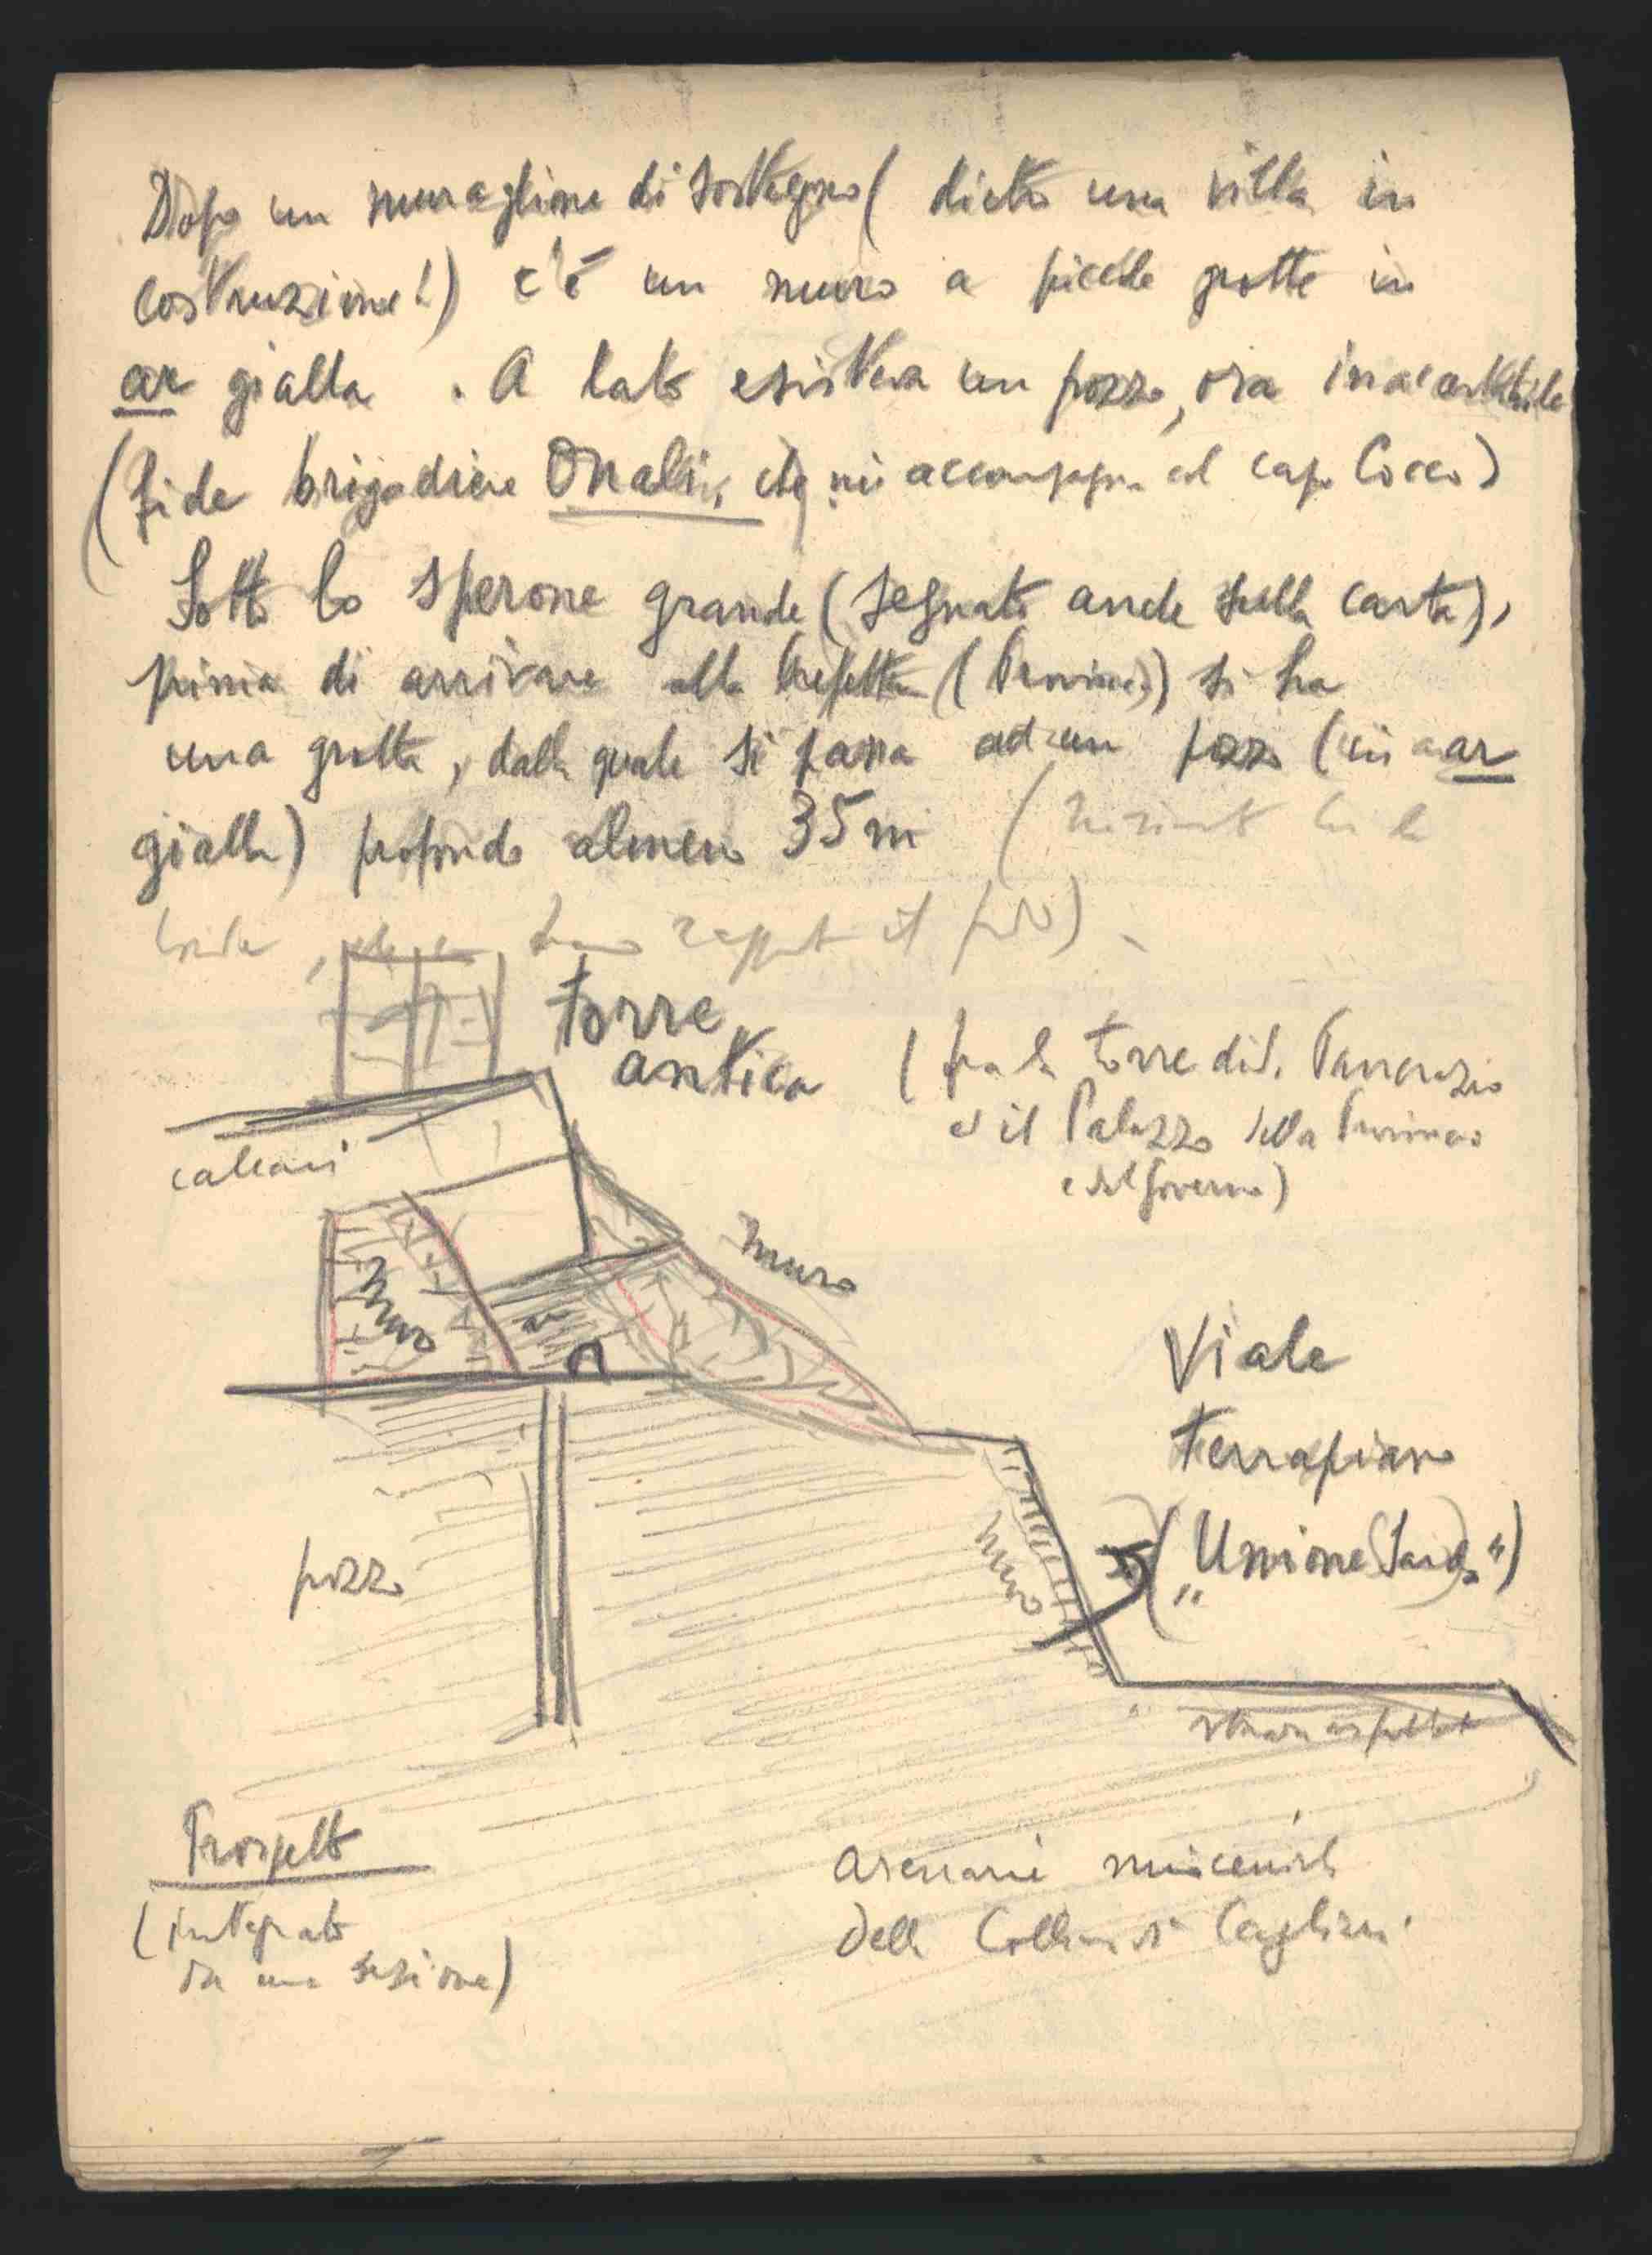 Dopo un muraglione di sostegno (dietro una villa in
costruzione!) c'è un muro a piccole grotte in
ar gialla. A lato esisteva un pozzo, ora inaccessibile
(fide brigadiere Onali, che mi accompagna col capo Cocco)
Sotto lo sperone grande (segnato anche sulla carta),
prima di arrivare alla Prefettura (Provincia) si ha
una grotta, dalla quale si passa ad un pozzo (in ar
gialla) profondo almeno 35 m (
il fondo)
torre
antica
(fra la torre di S. Pancrazio
ed il Palazzo della Provincia
e del Governo)
calcari
muro
muro
ar
Viale
terrapieno
(„Unione Sarda“)
muro
pozzo
strada asfaltata
Prospetto
(integrato
da una sezione)
arenarie mioceniche
della Collina di Cagliari